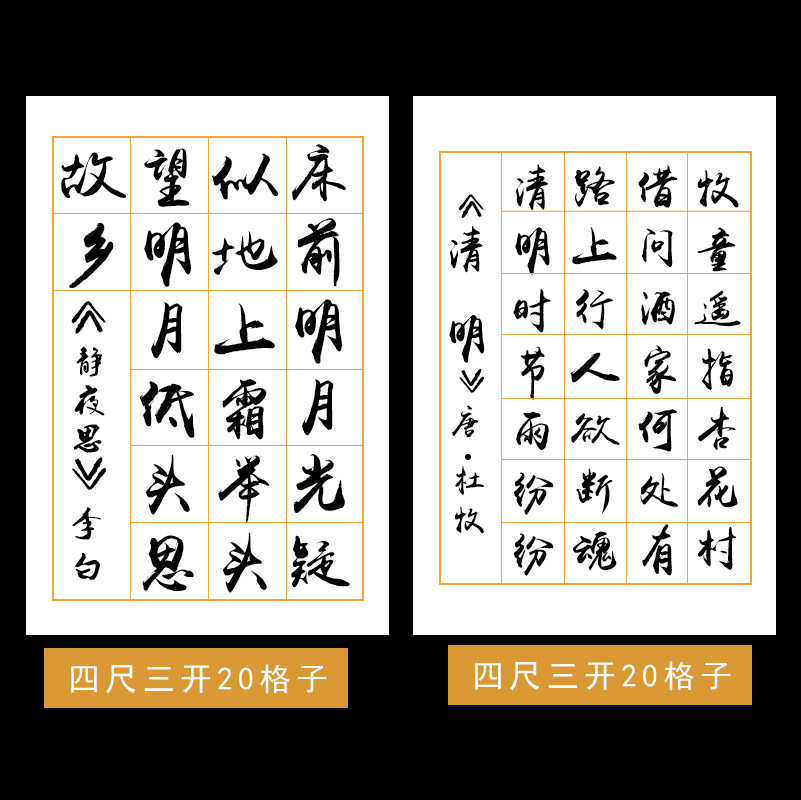 床前明月光疑
似地上霜举头
望明月低头思
故乡
《静夜思》李白
四尺三开20格子
《清 明》唐·杜牧
清明时节雨纷纷
路上行人欲断魂
借问酒家何处有
牧童遥指杏花村
四尺三开20格子